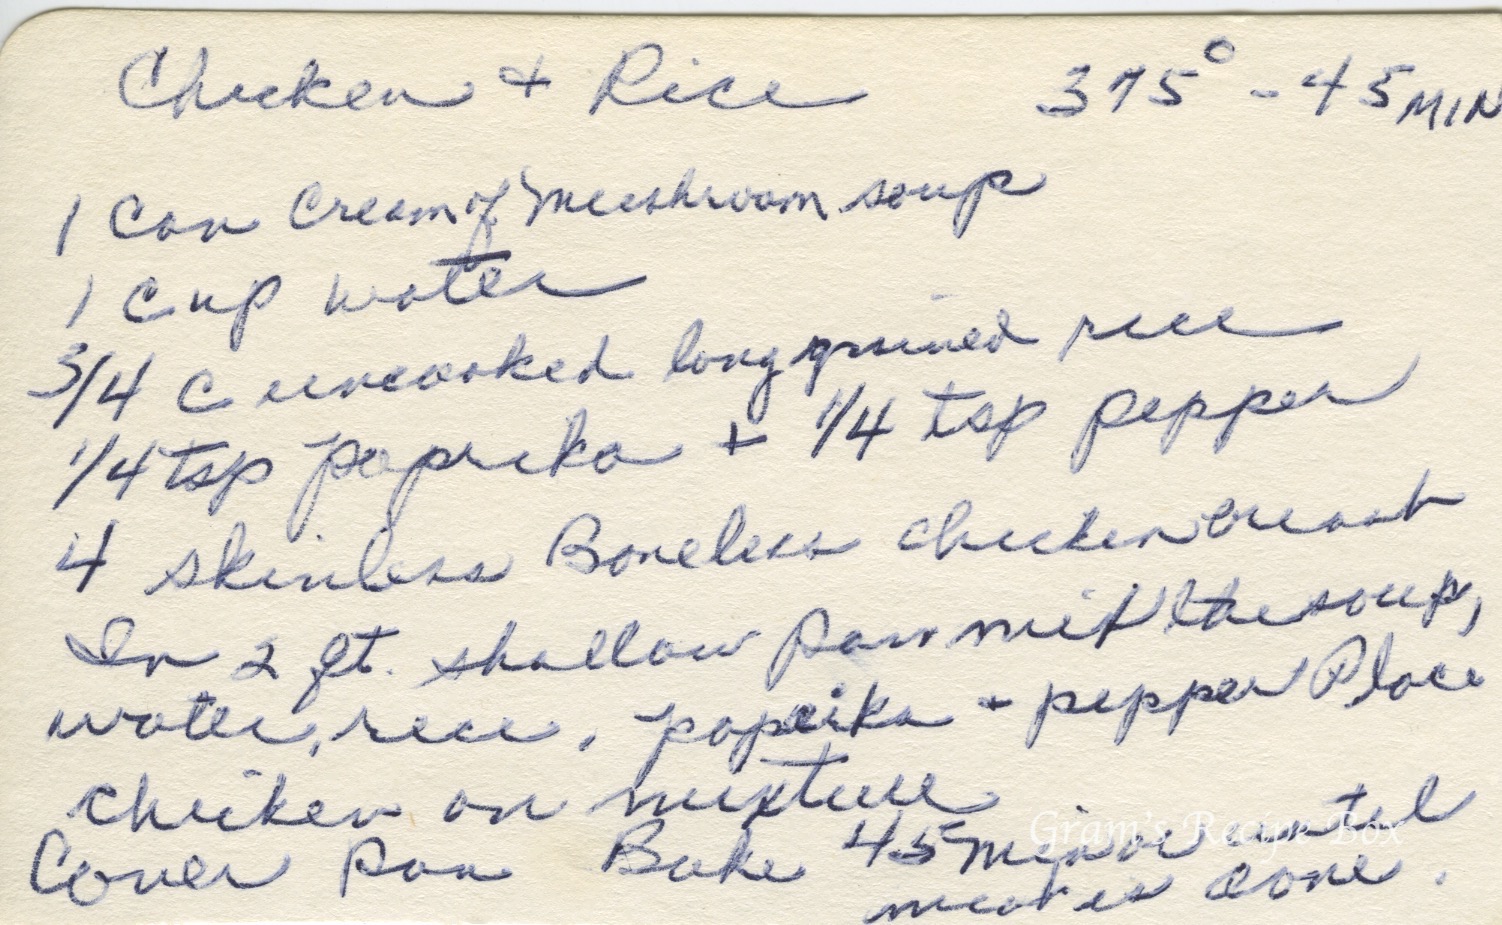 Chicken + Rice 375° - 45 MIN
1 Can Cream of Mushroom soup
1 Cup water
3/4 C uncooked long grained rice
1/4 tsp paprika + 1/4 tsp pepper
4 skinless Boneless chicken breast
In 2 qt. shallow pan mix the soup,
water, rice, paprika + pepper Place
chicken on mixture
Cover Pan Bake 45 min or until
meat is done.
Gram's Recipe Box